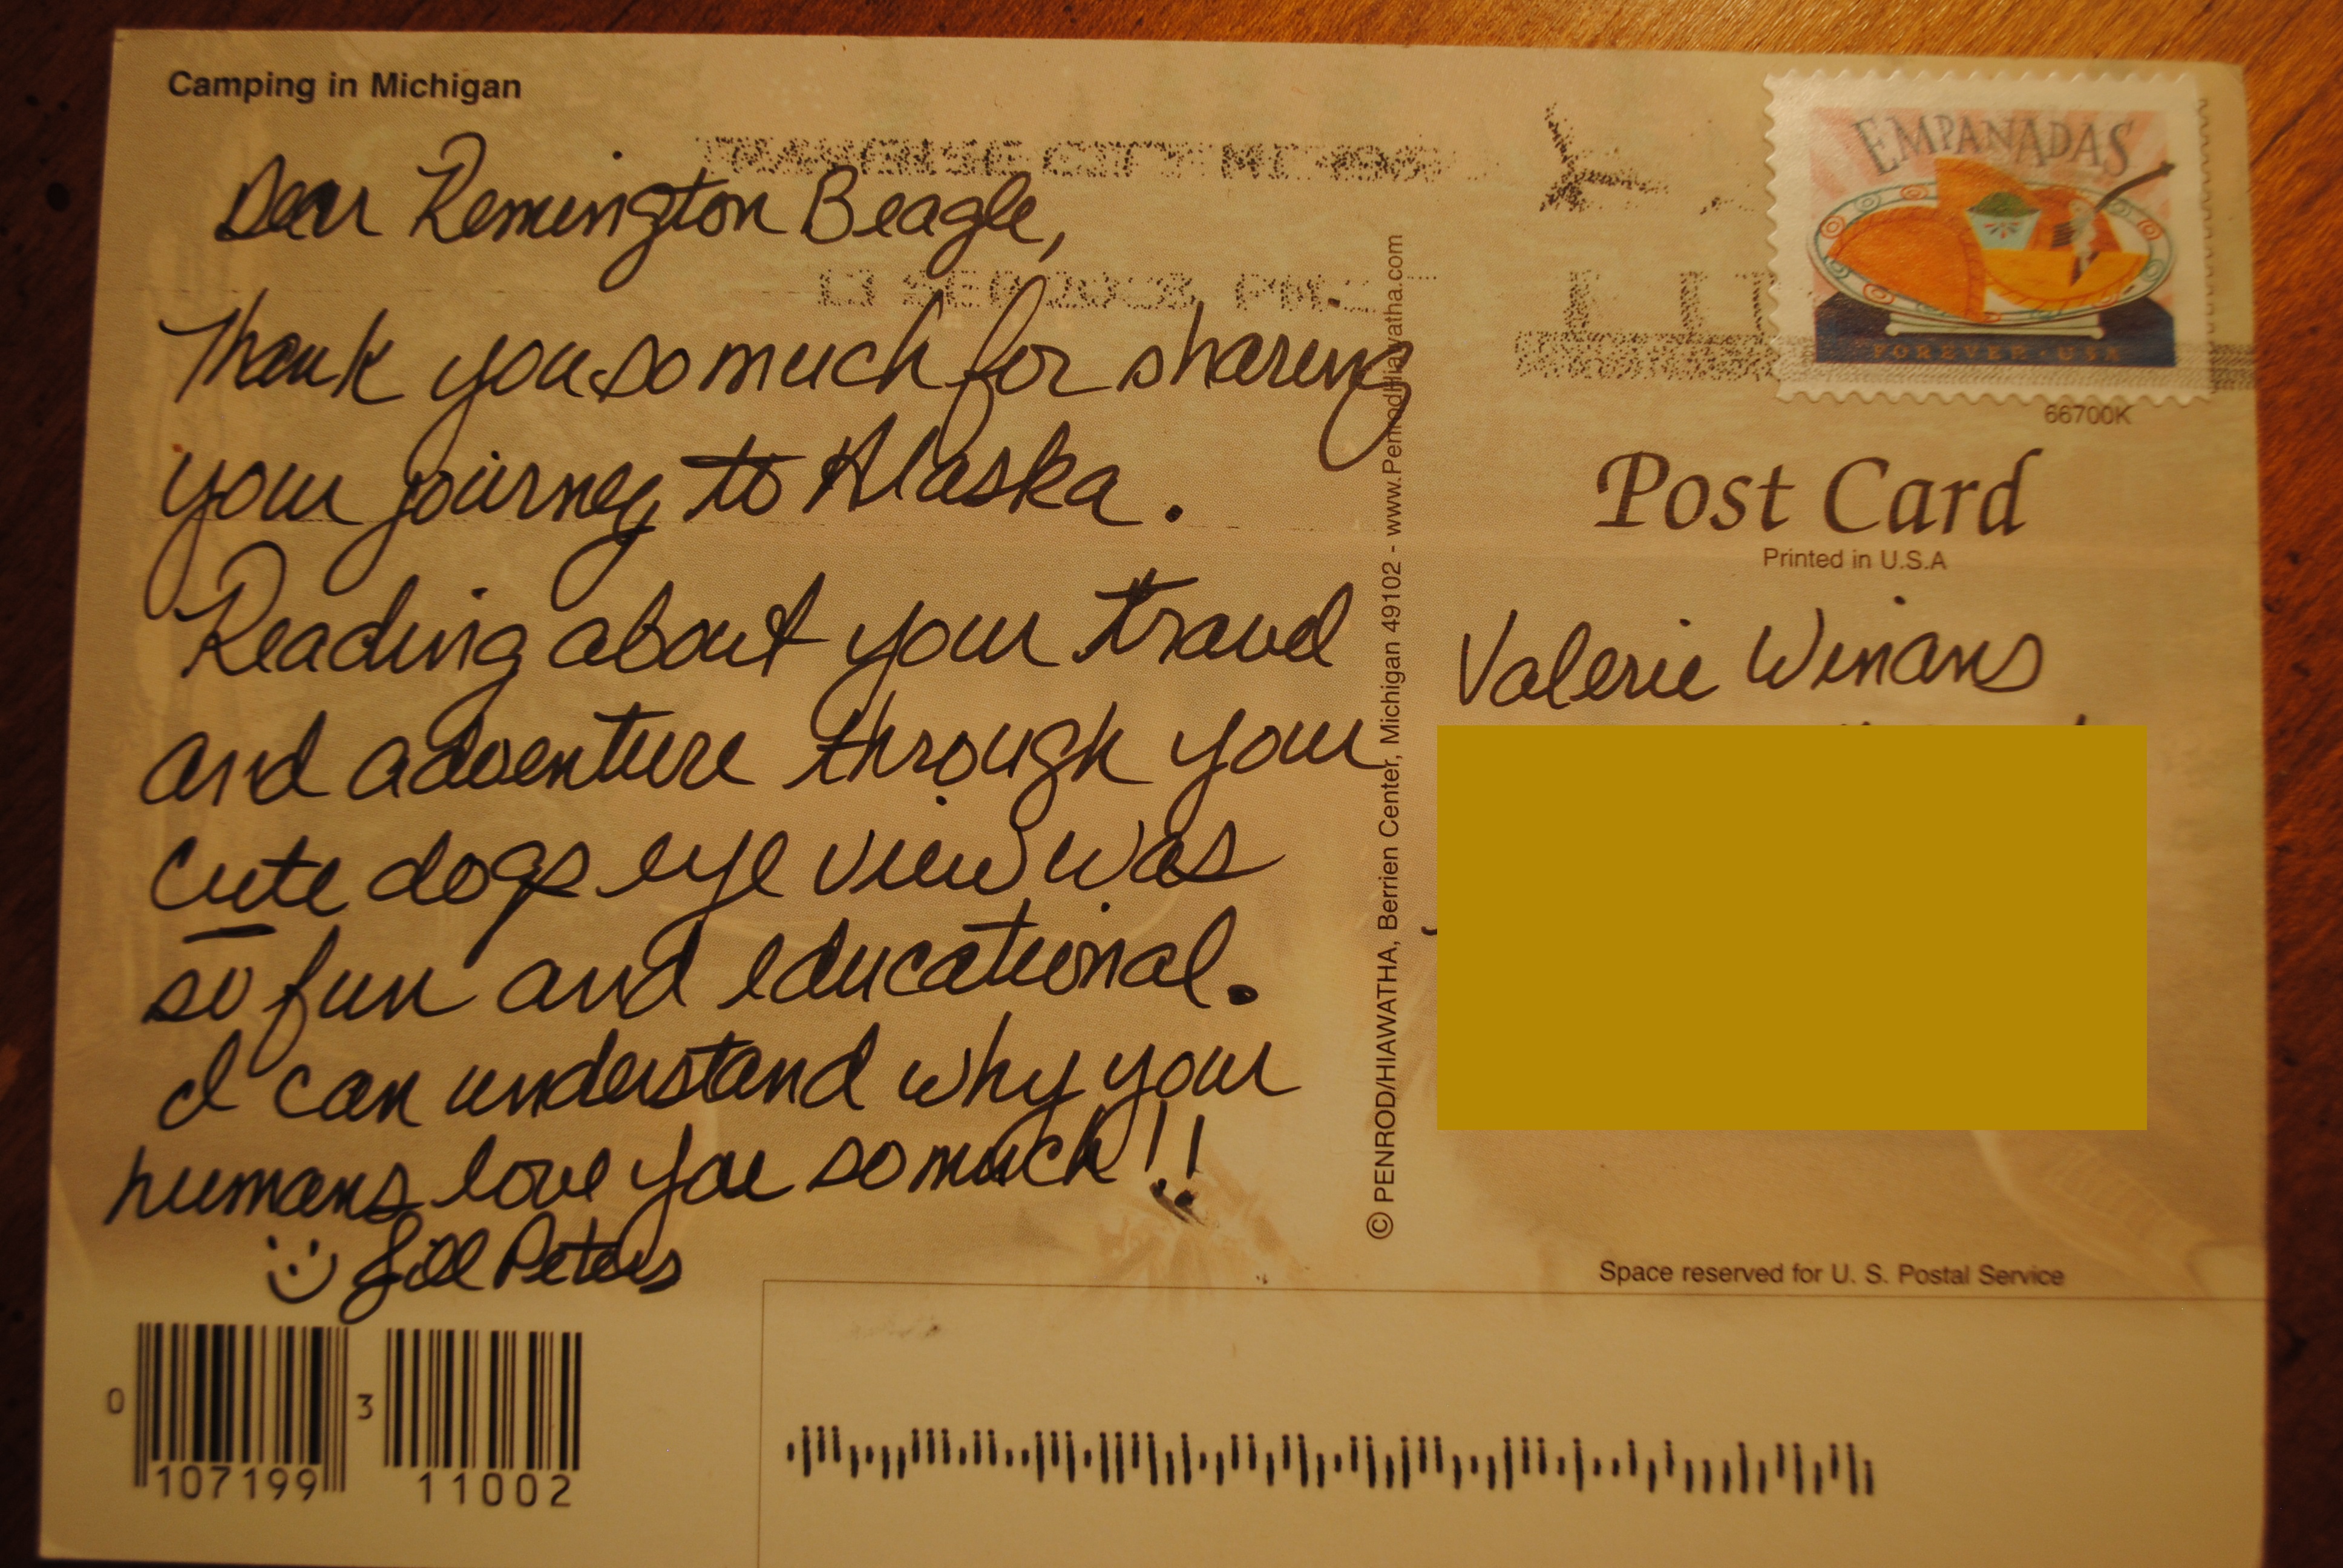 Camping in Michigan
TRAVERSE CITY MI 496
13 SEP 2023 PM
EMPANADAS
FOREVER • USA
66700K
Dear Remington Beagle,
Thank you so much for sharing
your journey to Alaska.
Reading about your travel
and adventure through your
cute dogs eye view was
so fun and educational.
I can understand why your
humans love you so much!!
Jill Peters
© PENROD/HIAWATHA, Berrien Center, Michigan 49102 - www.PenrodHiawatha.com
Post Card
Printed in U.S.A
Valerie Winans
Space reserved for U. S. Postal Service
0 107199 3 11002